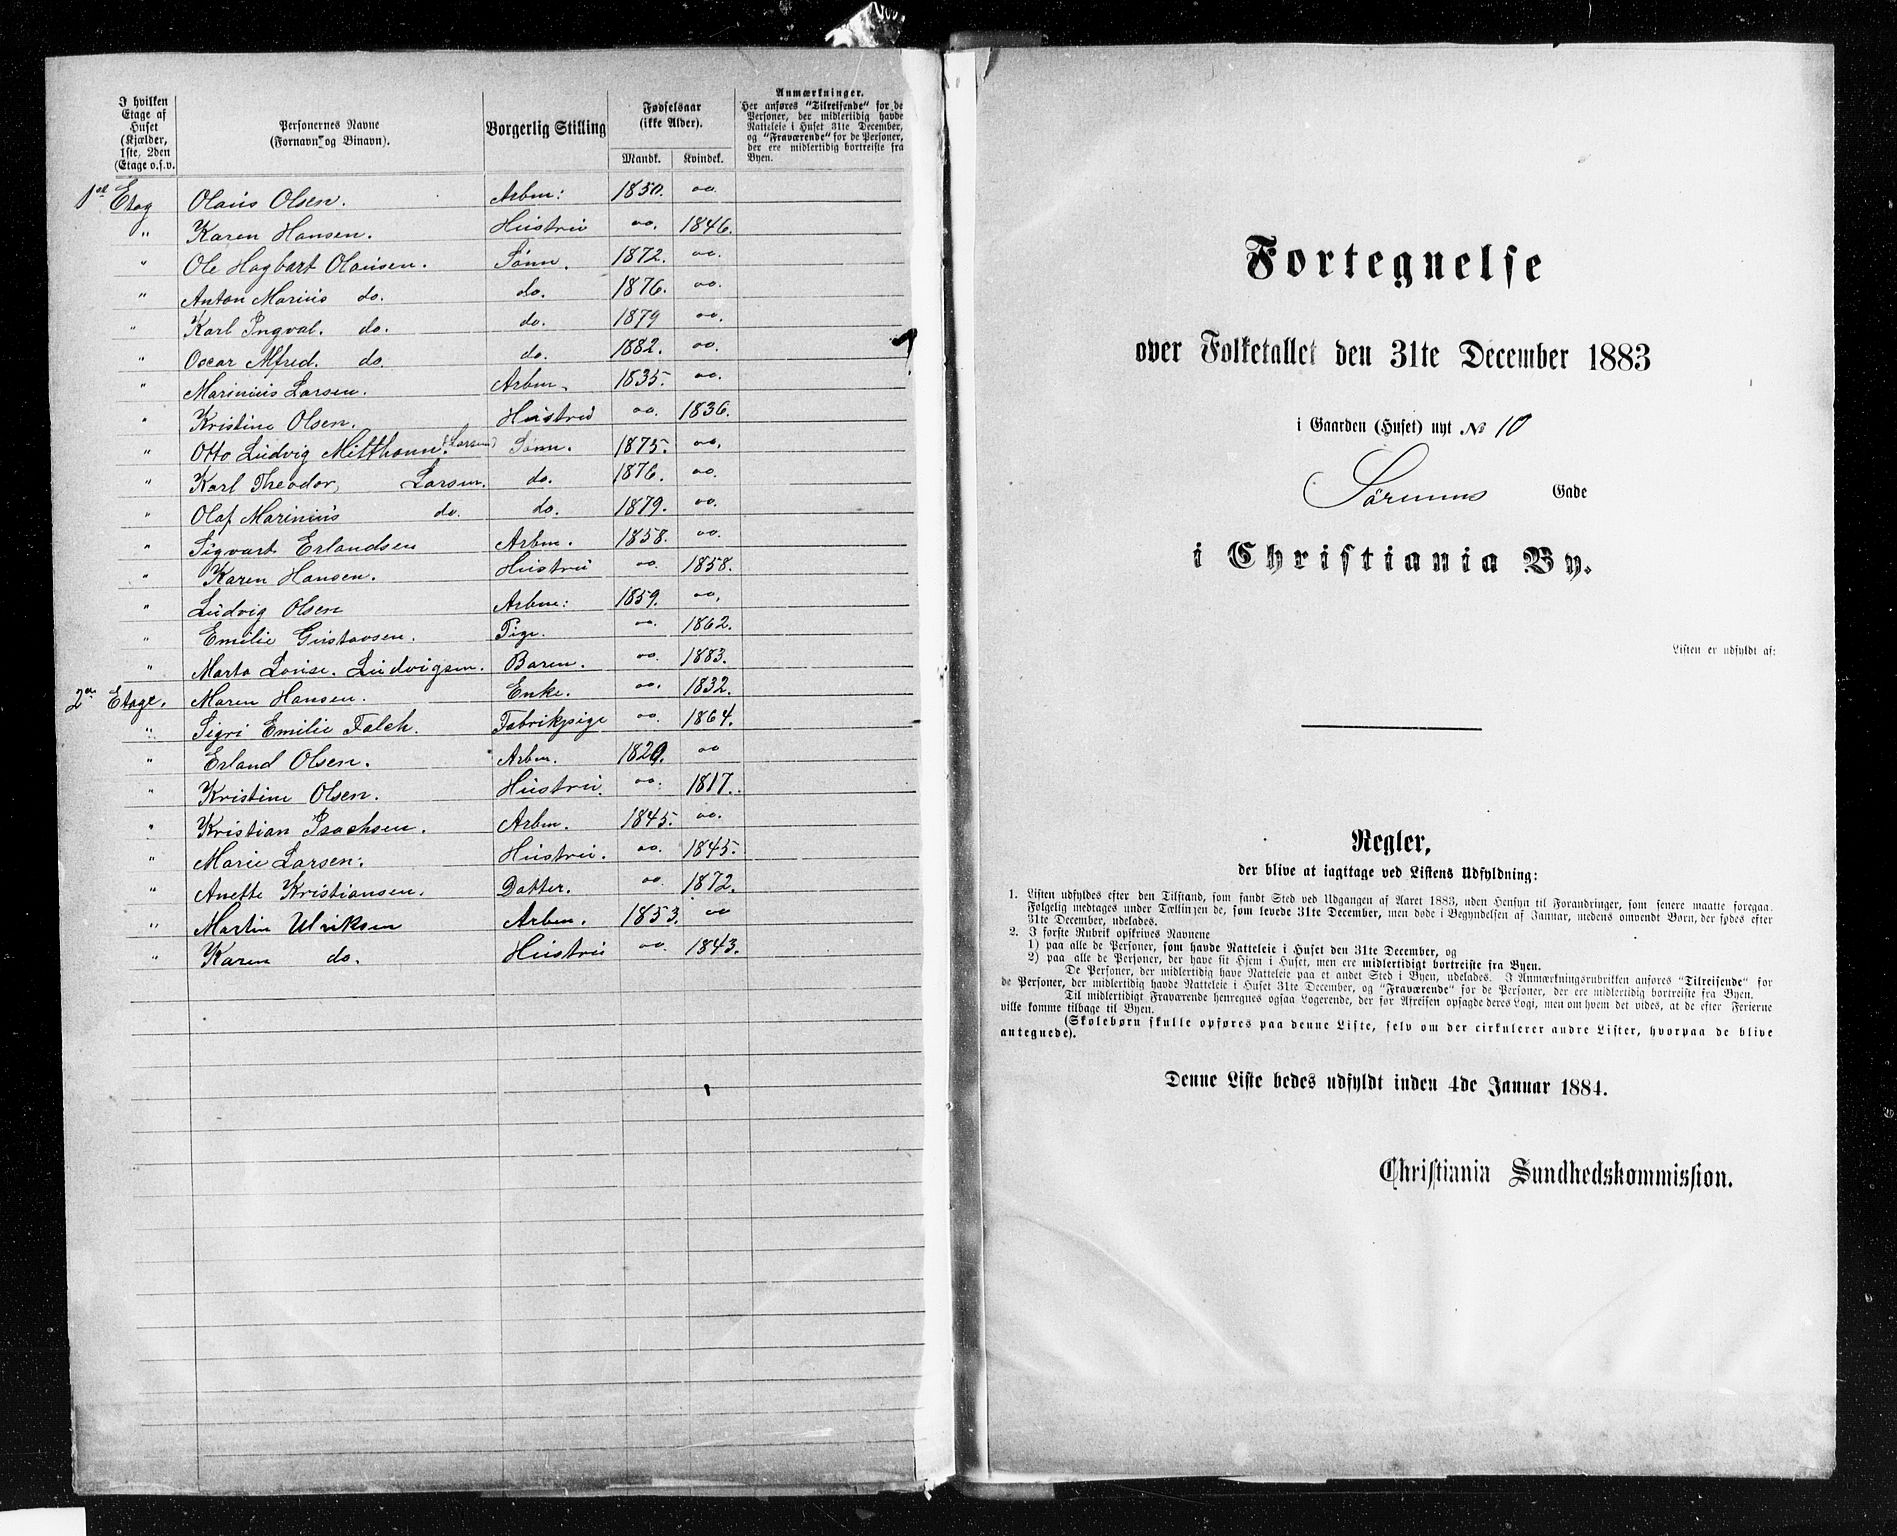 I hvilken
Etage af
Huset
(Kjælder,
1ste, 2den
Etage o.s.v.
Personernes Navne
(Fornavn og Binavn).
Borgerlig Stilling
Fødselsaar
(ikke Alder).
Mandk. Kvindek.
Anmærkninger.
Her anføres "Tilreisende" for de
Personer, der midlertidig havde
Natteleie i Huset 31te December,
og "Fraværende" for de Personer,
der ere midlertidig bortreiste fra
Byen.
1st Etag Olaus Olsen. Arbm: 1850. oo
" Karen Hansen. Hustru oo. 1846.
" Ole Hagbart Olausen. Sønn. 1872. oo.
" Anton Marius do. do. 1876. oo.
" Karl Ingval. do. do. 1879 oo.
" Oscar Alfred. do. do. 1882. oo.
" Marinius Larsen. Arbm. 1835. oo.
" Kristine Olsen. Hustru oo. 1836.
" Otto Ludvig Milthonn. (Larsen) Sønn. 1875. oo.
" Karl Theodor, Larsen. do. 1876. oo.
" Olaf Marinius do. do. 1879. oo.
" Sigvart Erlandsen Arbm. 1858. oo.
" Karen Hansen. Hustru oo. 1858.
" Ludvig Olsen Arbm: 1859. oo.
" Emilie Gustavsen. Pige. oo. 1862.
" Marta Louise. Ludvigsen. Baren. oo. 1883.
2den Etage. Maren Hansen. Enke. oo. 1832.
" Sigri Emilie Falch. Fabrikpige oo. 1864.
" Erland Olsen. Arbm. 1829. oo
" Kristine Olsen. Hustru. oo. 1817.
" Kristian Isachsen. Arbm. 1845. oo.
" Marie Larsen. Hustru. oo. 1845.
" Anette Kristiansen. Datter. oo. 1872.
" Martin Ulriksen Arbm. 1853. oo
" Karen do. Hustru oo. 1843.
Fortegnelse
over Folketallet den 31te December 1883
i Gaarden (Huset) nyt № 10
Sørums Gade
i Christiania By.
Listen er udfyldt af:
Regler,
der blive at iagttage ved Listens Udfyldning:
1. Listen udfyldes efter den Tilstand, som fandt Sted ved Udgangen af Aaret 1883, uden Hensyn til Forandringer, som senere maatte foregaa.
Følgelig medtages under Tællingen de, som levede 31te December, men døde i Begyndelsen af Januar, medens omvendt Børn, der fødes efter
31te December, udelades.
2. I første Rubrik opskrives Navnene
1) paa alle de Personer, som havde Natteleie i Huset den 31te December, og
2) paa alle de Personer, der have sit Hjem i Huset, men ere midlertidigt bortreiste fra Byen.
De Personer, der midlertidig have Natteleie paa et andet Sted i Byen, udelades. I Anmærkningsrubrikken anføres "Tilreisende" for
de Personer, der midlertidig havde Natteleie i Huset 31te December, og "Fraværende" for de Personer, der ere midlertidig bortreiste fra Byen.
Til midlertidigt Fraværende henregnes ogsaa Logerende, der før Afreisen opsagde deres Logi, men om hvem det vides, at de efter Ferierne
ville komme tilbage til Byen.
(Skolebørn skulle opføres paa denne Liste, selv om der cirkulerer andre Lister, hvorpaa de blive
antegnede).
Denne Liste bedes udfyldt inden 4de Januar 1884.
Christiania Sundhedskommission.